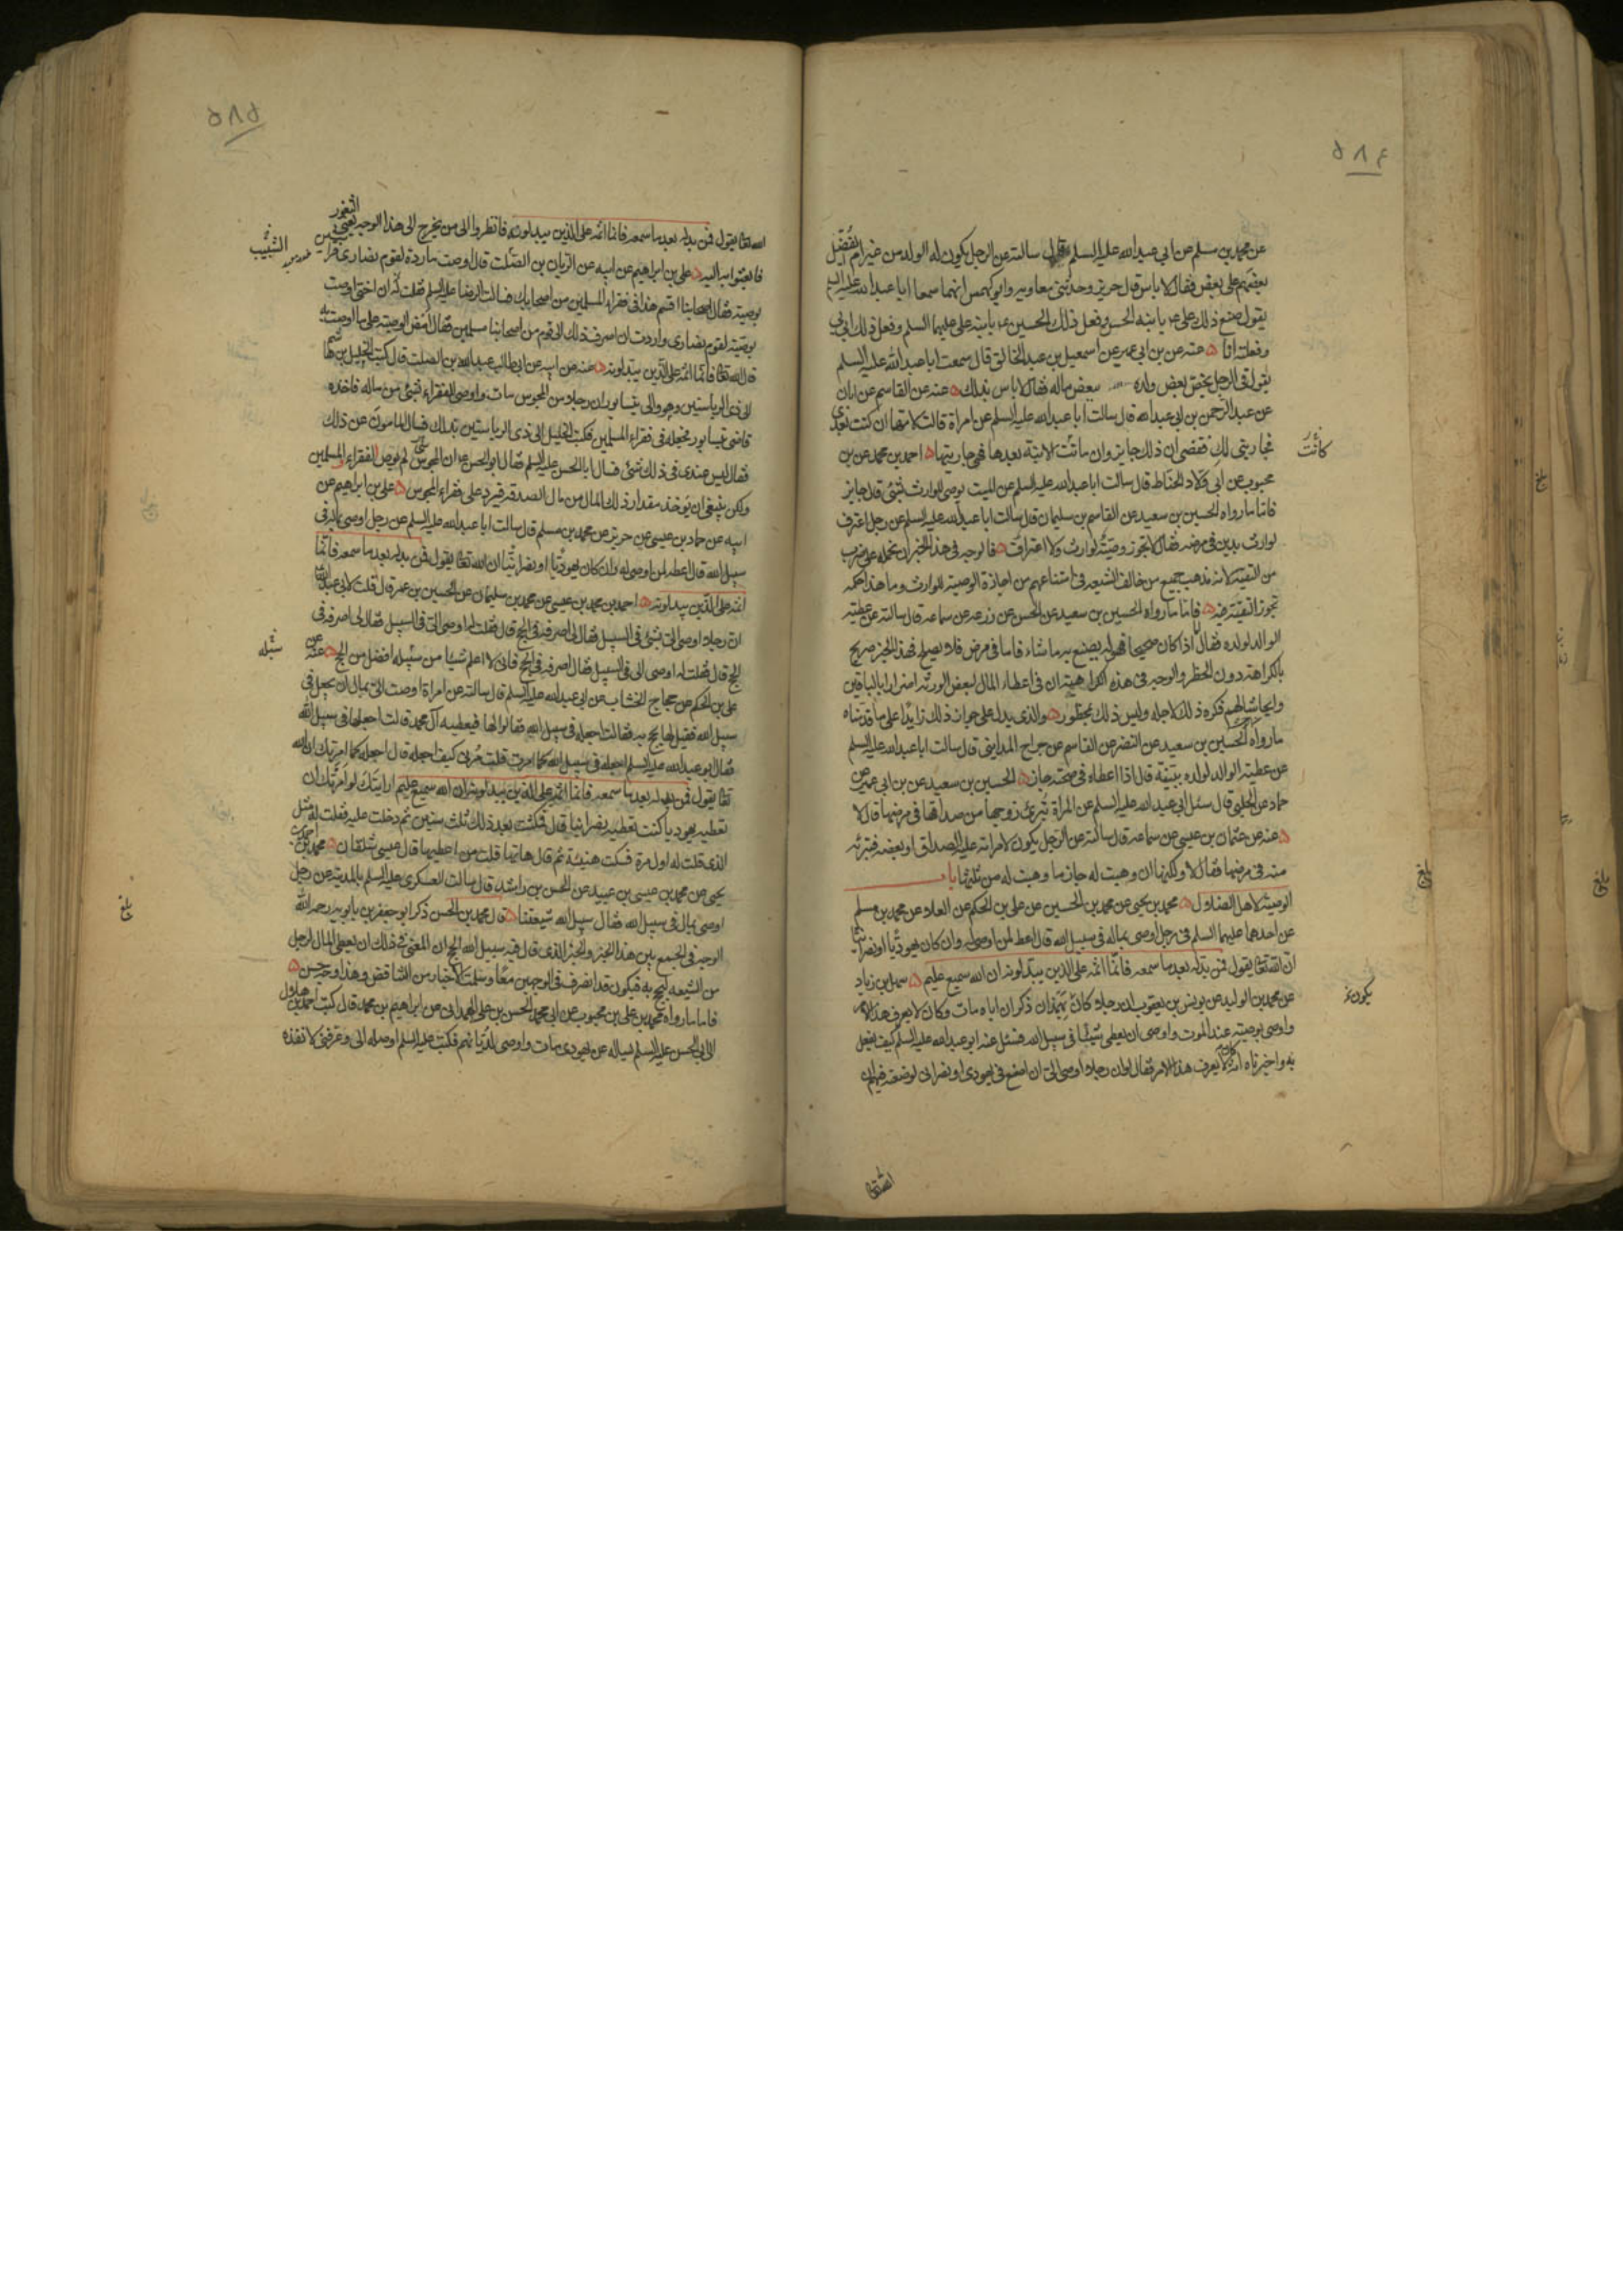 ٥٨٤
عن محمد بن مسلم عن ابي عبد الله عليه السلم قال سالته عن الرجل يكون له الولد من غير ام يفضل
بعضهم على بعض فقال لا باس قال حريز وحدثنى معاويه وابو كهمس انهما سمعا ابا عبد الله عليه السلم
يقول صنع ذلك على ع بابنه الحسن وفعل ذلك الحسين ع بابنه على عليهما السلم وفعل ذلك ابى بى
وفعلته انا عنه عن بن ابى عمير عن اسمعيل بن عبد الخالق قال سمعت ابا عبد الله عليه السلم
يقول فى الرجل يخص بعض ولده ببعض ماله فقال لا باس بذلك عنه عن القاسم عن ابان
عن عبد الرحمن بن ابى عبد الله قال سالت ابا عبد الله عليه السلم عن امراة قالت لامها ان كنت بعدى
كانت
فجاريتى لك فقضى ان ذلك جايز وان ماتت الابنة بعدها فهى جاريتها احمد بن محمد عن بن
محبوب عن ابى ولاد الحناط قال سالت ابا عبد الله عليه السلم عن الميت يوصى للوارث بشئ قال جايز
فاما ما رواه الحسين بن سعيد عن القاسم بن سليمان قال سالت ابا عبد الله عليه السلم عن رجل اعترف
لوارث بدين فى مرضه فقال لا تجوز وصيته لوارث ولا اعتراف فالوجه فى هذا الخبر ان نحمله على ضرب
من التقية لانه مذهب جميع من خالف الشيعه فى امتناعهم من اجازة الوصية للوارث وما هذا حكمه
تجوز التقية فيه فاما ما رواه الحسين بن سعيد عن الحسن عن زرعه عن سماعه قال سالته عن عطية
الوالد لولده فقال اذا كان صحيحا فهو له يصنع به ما شاء فاما فى مرض فلا يصلح فهذا الخبر صريح
بالكراهة دون الحظر والوجه فى هذه الكراهية ان فى اعطاء المال لبعض الورثه اضرارا بالباقين
وايحاشا لهم فكره ذلك لاجله وليس ذلك بمحظور والذى يدل على جواز ذلك زايدا على ما قدمناه
ما رواه الحسين بن سعيد عن النضر عن القاسم عن جراح المداينى قال سالت ابا عبد الله عليه السلم
عن عطية الوالد لولده ببينة قال اذا اعطاه فى صحته جاز الحسين بن سعيد عن بن ابى عمير عن
حماد عن الحلبى قال سئل ابى عبد الله عليه السلم عن المراة تبرئ زوجها من صداقها فى مرضها قال لا
عنه عن عثمان بن عيسى عن سماعه قال سالته عن الرجل يكون لامراته عليه الصداق او بعضه فتبرئه
منه فى مرضها فقال لا ولكنها ان وهبت له جاز ما وهبت له من ثلثها باب
الوصية لاهل الضلال محمد بن يحيى عن محمد بن الحسين عن على بن الحكم عن العلاء عن محمد بن مسلم
عن احدهما عليهما السلم فى رجل اوصى بماله فى سبيل الله قال اعط لمن اوصى له وان كان يهوديا او نصرانيا
ان الله تعالى يقول فمن بدله بعد ما سمعه فانما اثمه على الذين يبدلونه ان الله سميع عليم سهل بن زياد
عن محمد بن الوليد عن يونس بن يعقوب ان رجلا كان بهمدان ذكر ان اباه مات وكان لا يعرف هذا الامر
يكون
واوصى بوصيته عند الموت واوصى ان يعطى شيئا فى سبيل الله فسئل عنه ابو عبد الله عليه السلم كيف يفعل
به واخبرناه انه كان لا يعرف هذا الامر فقال لو ان رجلا اوصى الى ان اضع فى يهودى او نصرانى لوضعته فيهم ان
بلغ
بلغ
٥٨٥
الثغور
الله تعالى يقول فمن بدله بعد ما سمعه فانما اثمه على الذين يبدلونه فانظروا الى من يخرج الى هذا الوجه يعنى
فابعثوا به اليه على بن ابراهيم عن ابيه عن الريان بن الصلت قال اوصت ماردة لقوم نصارى فراشين
بوصية فقال اصحابنا اقسم هذا فى فقراء المسلمين من اصحابك فسالت الرضا عليه السلم فقلت ان اختى اوصت
بوصية لقوم نصارى واردت ان اصرف ذلك الى قوم من اصحابنا مسلمين فقال امض الوصية على ما اوصت به
قال الله تعالى فانما اثمه على الذين يبدلونه عنه عن ابيه عن ابى طالب عبد الله بن الصلت قال كتب الخليل بن هاشم
الى ذى الرياستين وهو والى نيسابور ان رجلا من المجوس مات واوصى للفقراء بشئ من ماله فاخذه
قاضى نيسابور فجعله فى فقراء المسلمين فكتب الخليل الى ذى الرياستين بذلك فسال المامون عن ذلك
فقال ليس عندى فى ذلك شئ فسال ابا الحسن عليه السلم فقال ابو الحسن ع ان المجوسى لم يوص لفقراء المسلمين
ولكن ينبغى ان يوخذ مقدار ذلك المال من مال الصدقه فيرد على فقراء المجوس على بن ابراهيم عن
ابيه عن حماد بن عيسى عن حريز عن محمد بن مسلم قال سالت ابا عبد الله عليه السلم عن رجل اوصى بماله فى
سبيل الله قال اعطه لمن اوصى له وان كان يهوديا او نصرانيا ان الله تعالى يقول فمن بدله بعد ما سمعه فانما
اثمه على الذين يبدلونه احمد بن محمد بن عيسى عن محمد بن سليمان عن الحسين بن عمر قال قلت لابى عبد الله
ان رجلا اوصى الى بشئ فى السبيل فقال لى اصرفه فى الحج قال فقلت له اوصى الى فى السبيل فقال لى اصرفه فى
الحج قال فقلت له اوصى الى فى السبيل فقال اصرفه فى الحج فانى لا اعلم شيئا من سبيله افضل من الحج عنه عن
على بن الحكم عن حجاج الخشاب عن ابى عبد الله عليه السلم قال سالته عن امراة اوصت الى بمال ان يجعل فى
سبيل الله فقيل لها يحج به فقالت اجعله فى سبيل الله فقالوا لها فيعطيه آل محمد قالت اجعلها فى سبيل الله
فقال ابو عبد الله عليه السلم اجعله فى سبيل الله كما امرت قلت مرنى كيف اجعله قال اجعله كما امرتك ان الله
تعالى يقول فمن بدله بعد ما سمعه فانما اثمه على الذين يبدلونه ان الله سميع عليم ارايتك لو امرتك ان
تعطيه يهوديا كنت تعطيه نصرانيا قال فمكثت بعد ذلك ثلث سنين ثم دخلت عليه فقلت له مثل
الذى قلت له اول مرة فسكت هنيئة ثم قال هاتها قلت من اعطيها قال عيسى شلقان محمد بن
يحيى عن محمد بن عيسى بن عبيد عن الحسن بن راشد قال سالت العسكرى عليه السلم بالمدينة عن رجل
اوصى بمال فى سبيل الله فقال سبيل الله شيعتنا قال محمد بن الحسن ذكر ابو جعفر بن بابويه رحمه الله
الوجه فى الجمع بين هذا الخبر والخبر الذى قال فيه سبيل الله الحج ان المعنى فى ذلك ان يعطى المال لرجل
من الشيعه ليحج به فيكون قد انصرف فى الوجهين معا وسلمت الاخبار من التناقض وهذا وجه حسن
فاما ما رواه محمد بن على بن محبوب عن ابى محمد الحسن بن على الهمدانى عن ابراهيم بن محمد قال كتب احمد بن هلال
الى ابى الحسن عليه السلم يساله عن يهودى مات واوصى لديانهم فكتب عليه السلم اوصله الى وعرفنى لانفذه
بلغ